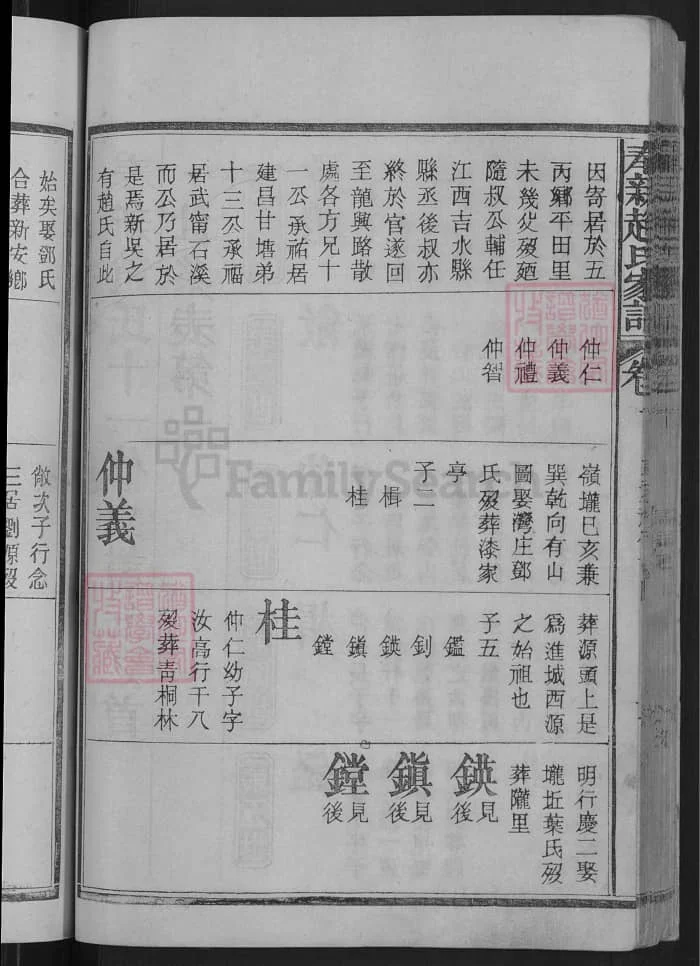 奉新趙氏家譜
卷
因寄居於五
丙鄉平田里
未幾父歿廼
隨叔公輔任
江西吉水縣
縣丞後叔亦
終於官遂回
至龍興路散
處各方兄十
一公承祐居
建昌甘塘弟
十三公承福
居武甯石溪
而公乃居於
是焉新吳之
有趙氏自此
仲仁
仲義
仲禮
仲智
嶺壠巳亥兼
巽乾向有山
圖娶灣庄鄧
氏歿葬漆家
亭
子二
楫
桂
仲義
葬源頭上是
爲進城西源
之始祖也
子五
鑑
釗
鍈
鎭
鏜
桂
仲仁幼子字
汝高行千八
歿葬靑桐林
明行慶二娶
壠坵葉氏歿
葬隴里
鍈見後
鎭見後
鏜見後
始矣娶鄧氏
合葬新安鄉
敵次子行念
三居劉源歿
FamilySearch